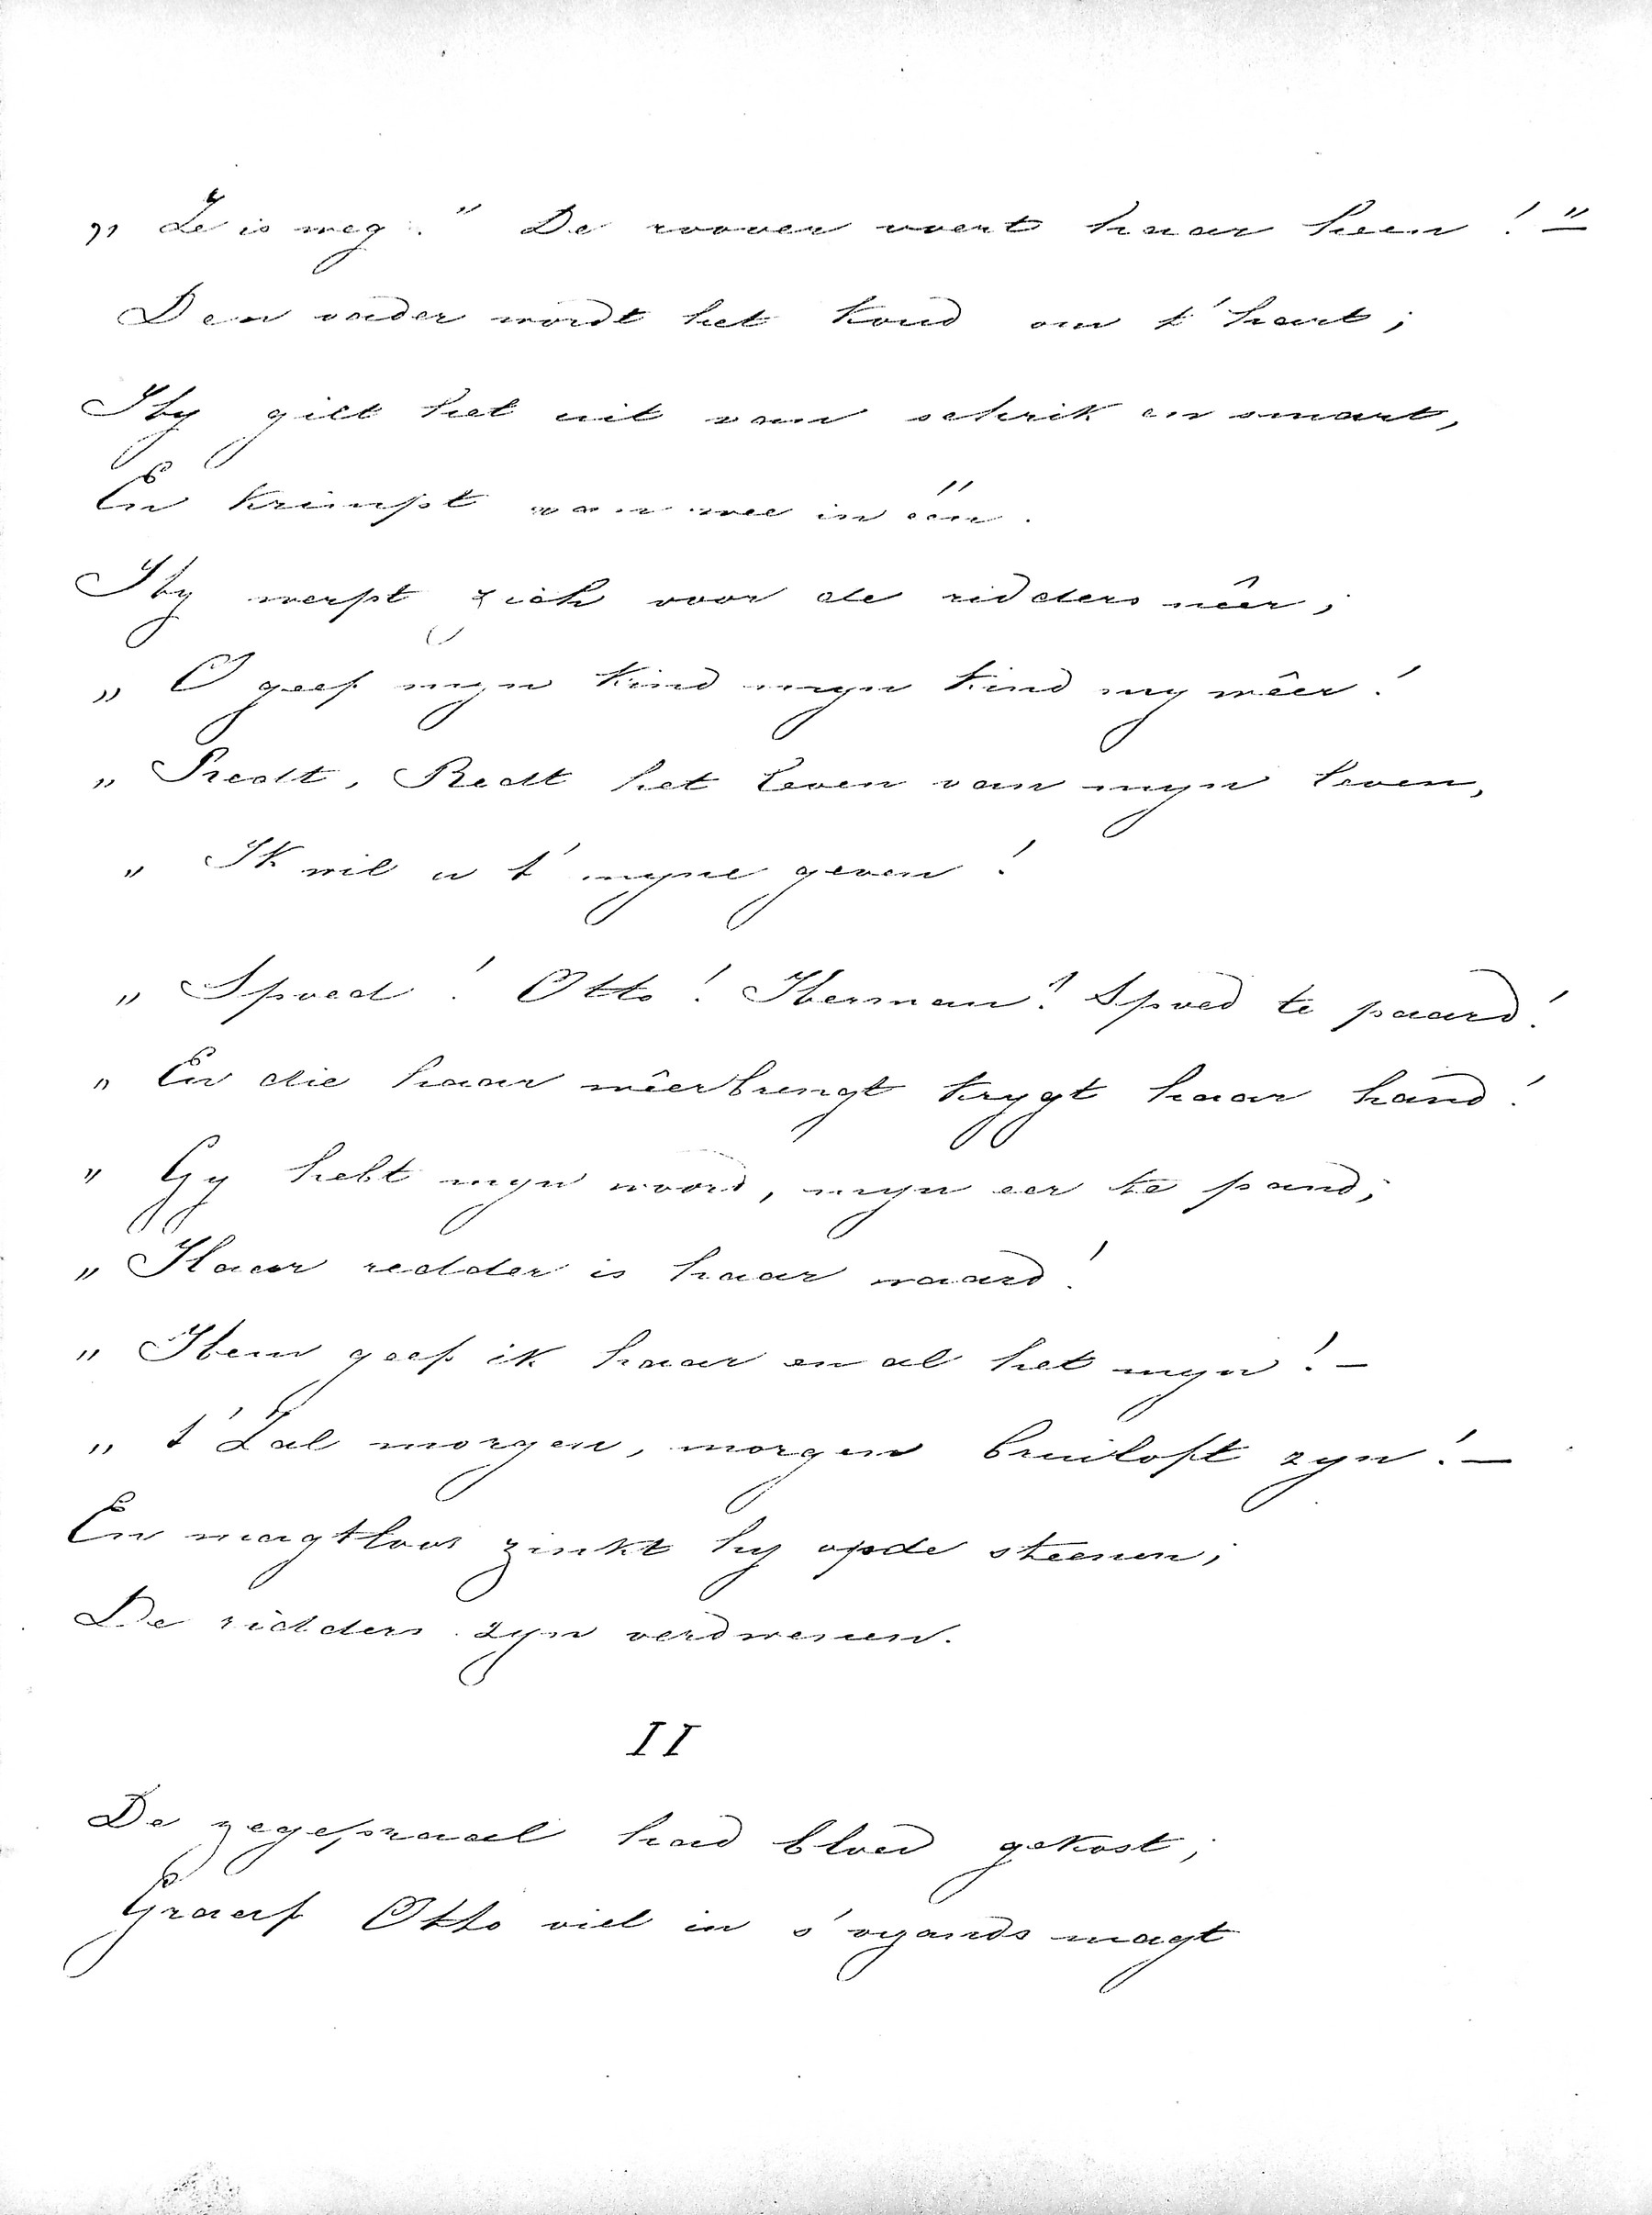 „ Ze is weg." De roover voert haar heen!"
Den vader wordt het koud om t' hart;
Hy gilt het uit van schrik en smart,
En krimpt van wee in één.
Hy werpt zich voor de ridders nêer;
„ O geef myn kind myn kind my wêer!
„ Redt, Redt het leven van myn leven,
„ Ik wil u t' myne geven!
„ Spoed! Otto! Herman! Spoed te paard!
„ En die haar wêerbrengt krygt haar hand!
„ Gy hebt myn woord, myn eer te pand;
„ Haar redder is haar waard!
„ Hem geef ik haar en al het myn! –
„ t' Zal morgen, morgen bruiloft zyn! –
En magtloos zinkt hy op de steenen;
De ridders zyn verdwenen.
II
De zegepraal had bloed gekost;
Graaf Otto viel in s' vyands magt